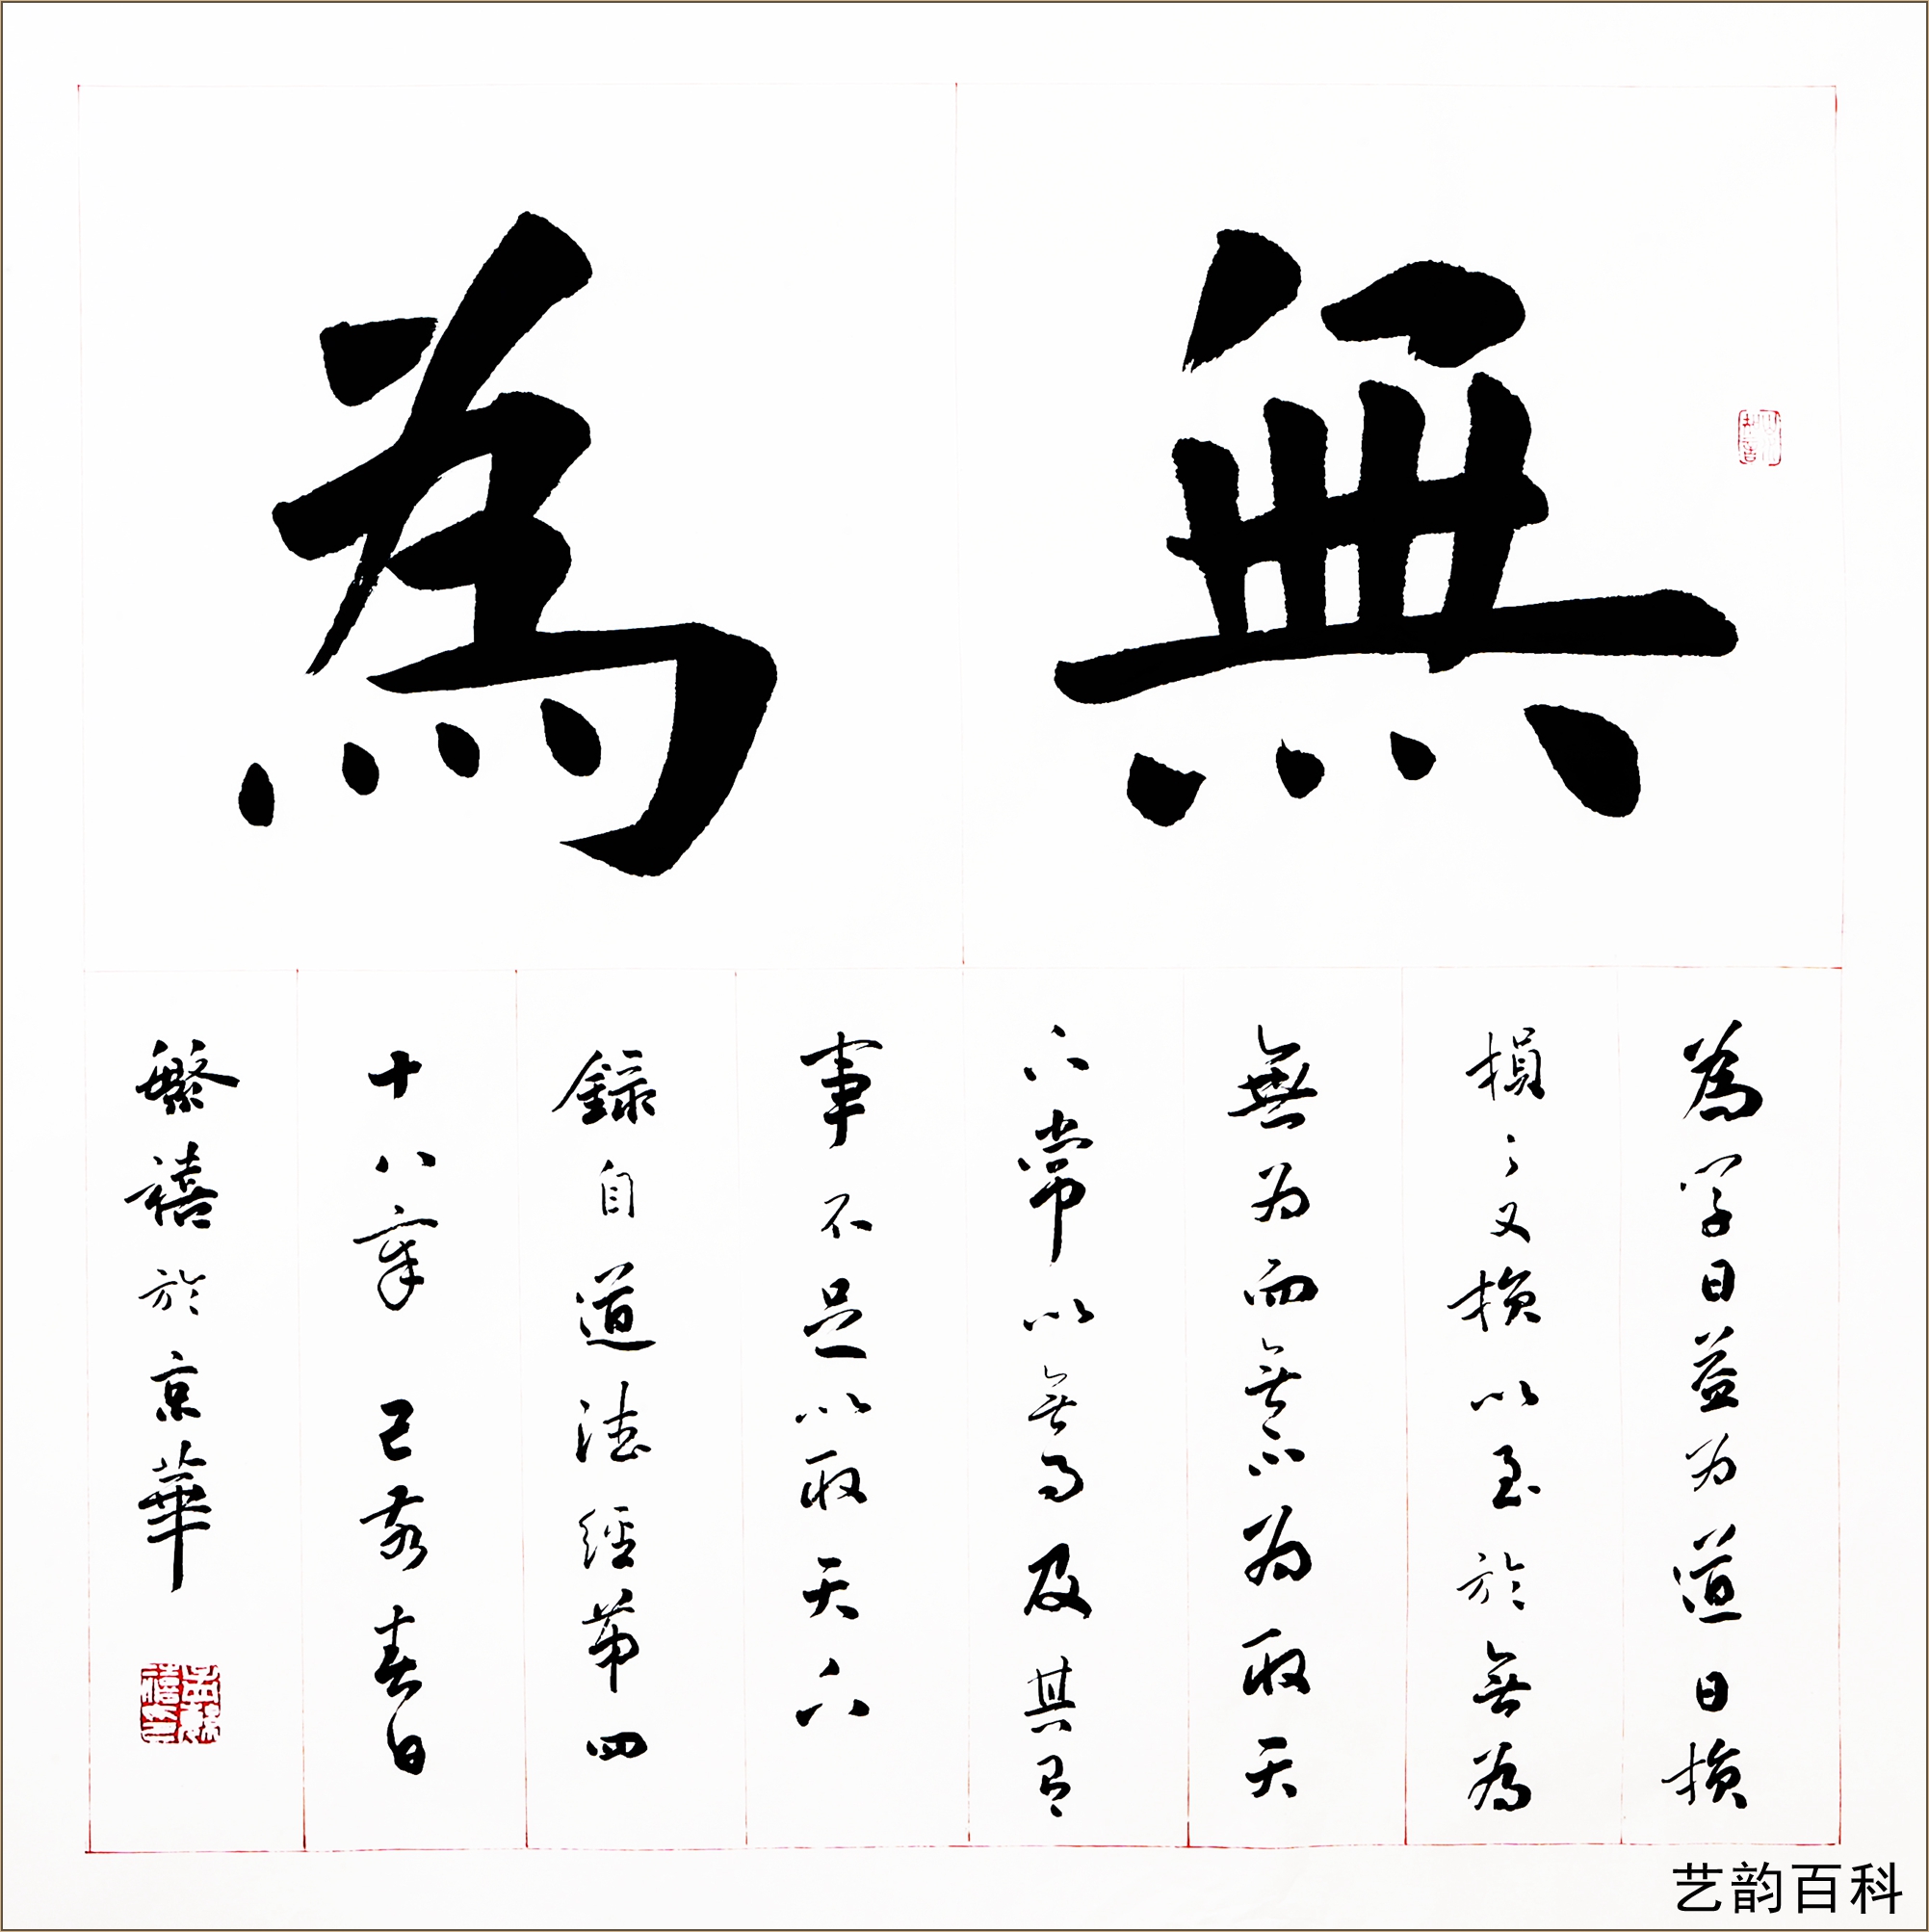 無為
為学日益为道日損
損之又損以至於無為
無为而無不为取天
下常以無事及其有
事不足以取天下
録自道德经第四
十八章 己亥春日
繁禧於京華
艺韵百科